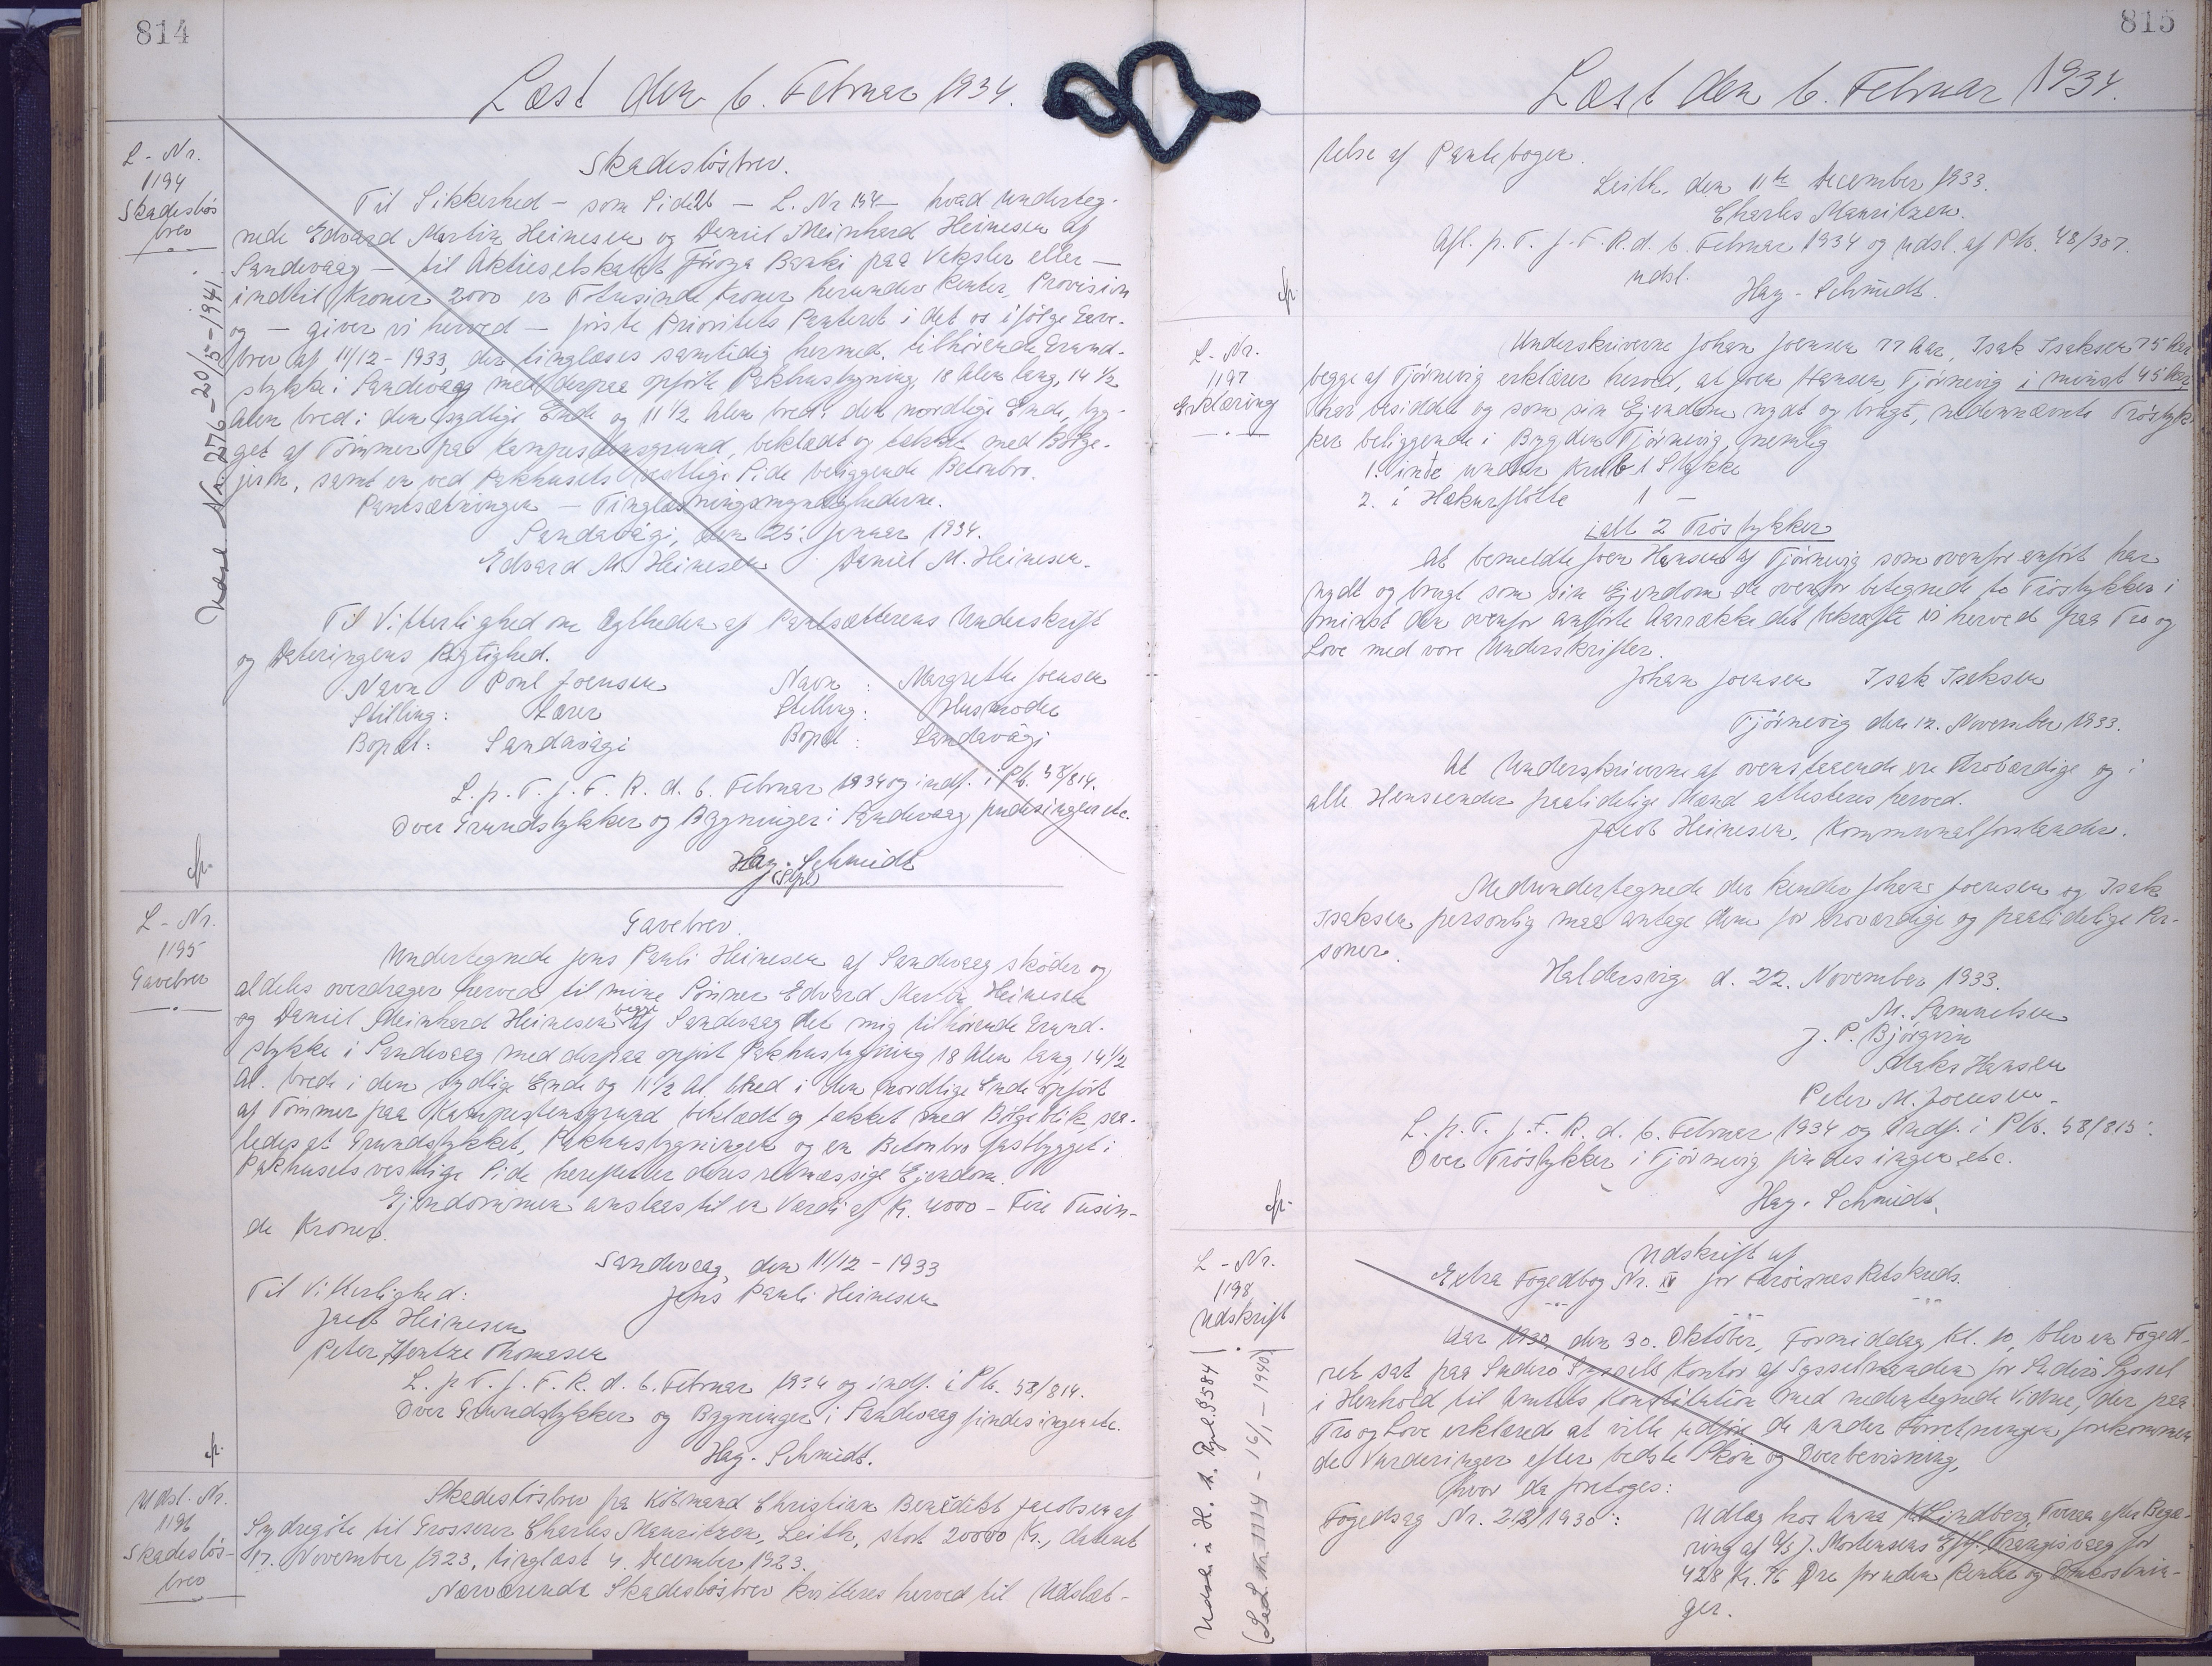 814
Læst den 6. Februar 1934.
L - Nr.
1194
Skadesløs
brev
Udsl. Nr. 276 - 20/5 - 1941
Skadesløsbrev.
Til Sikkerhed - som Side 26 - L. Nr 154 - hvad underteg-
nede Edvard Martin Heinesen og Daniel Meinhard Heinesen af
Sandevaag - til Aktieselskabet Føroya Banki paa Veksler eller -
indtil Kroner 2000 er Totusinde Kroner herunder Renter, Provision
og - giver vi herved - første Prioritets Panteret i det os ifølge Gave-
brev af 11/12 - 1933, der tinglæses samtidig hermed, tilhørende Grund-
stykke i Sandevaag med derpaa opførte Pakhusbygning, 18 Alen lang, 14 1/2
Alen bred i den sydlige Ende og 11 1/2 Alen bred i den nordlige Ende, byg-
get af Tømmer paa Kampestensgrund, beklædt og tækket med Bølge-
jern, samt en ved Pakhusets vestlige Side beliggende Betonbro.
Pantsætningen - Tinglæsningsmyndighederne.
Sandavági, den 25. Januar 1934.
Edvard M. Heinesen Daniel M. Heinesen.
Til Vitterlighed om Ægtheden af Pantsætterens Underskrift
og Dateringens Rigtighed.
Navn Poul Joensen Navn : Margrethe Joensen
Stilling: Lærer Stilling: Husmoder
Bopæl: Sandavági Bopæl : Sandavági
L. p. T. f. F. R. d. 6. Februar 1934 og indf. i Ptb. 58/814.
Over Grundstykker og Bygninger i Sandevaag findes ingen etc.
Hay-Schmidt
(Stpl)
L - Nr.
1195
Gavebrev
Gavebrev.
Undertegnede Jens Pauli Heinesen af Sandevaag skøder og
aldeles overdrager herved til mine Sønner Edvard Martin Heinesen
og Daniel Meinhard Heinesen begge af Sandevaag det mig tilhørende Grund-
stykke i Sandevaag med derpaa opført Pakhusbygning 18 Alen lang, 14 1/2
Al. brede i den sydlige Ende og 11 1/2 Al. bred i den nordlige Ende opført
af Tømmer paa Kampestensgrund beklædt og tækket med Bølgeblik, saa-
ledes at Grundstykket, Pakhusbygningen og en Betonbro fastbygget i
Pakhusets vestlige Side herefter er deres retmæssige Ejendom.
Ejendommen anslaas til en Værdi af Kr. 4000 - Fire Tusin-
de Kroner.
Sandevaag, den 11/12 - 1933
Til Vitterlighed: Jens Pauli Heinesen
Jacob Heinesen
Peter Hentze Thomasen
L. p. T. f. F. R. d. 6. Februar 1934 og indf. i Ptb. 58/814.
Over Grundstykker og Bygninger i Sandevaag findes ingen etc.
Hay-Schmidt.
Udsl. Nr.
1196
Skadesløs-
brev
Skadesløsbrev fra Købmand Christian Benedikt Jacobsen af
Sydregøte til Grosserer Charles Mauritzen, Leith, stort 20000 Kr., dateret
17. November 1923, tinglæst 4. December 1923.
Nærværende Skadesløsbrev kvitteres herved til Udslet-
815
Læst den 6. Februar 1934.
telse af Pantebogen.
Leith, den 11te December 1933.
Charles Mauritzen.
Afl. p. T. f. F. R. d. 6. Februar 1934 og udsl. af Ptb. 48/307.
udsl.
Hay-Schmidt.
L - Nr.
1197
Erklæring
Underskriverne Johan Joensen 77 Aar, Isak Isaksen 75 Aar
begge af Tjørnevig erklærer herved, at Joen Hansen, Tjørnevig i mindst 45 Aar
har besiddet og som sin Ejendom nydt og brugt, nedennævnte Trøstyk-
ker beliggende i Bygden Tjørnevig, nemlig
1. inde under Kulb 1 Stykke
2. i Hakursflötte 1 -
ialt 2 Trøstykker
At bemeldte Joen Hansen af Tjørnevig som ovenfor anført har
nydt og brugt som sin Ejendom de ovenfor betegnede to Trøstykker i
mindst den ovenfor anførte Aarrække det bekræfte vi herved paa Tro og
Love med vore Underskrifter.
Johan Joensen Isak Isaksen
Tjørnevig den 12. November 1933.
At Underskriverne af ovenstaaende ere troværdige og i
alle Henseender paalidelige Mænd attesteres herved.
Jacob Heinesen, Kommunalforstander.
Medundertegnede der kender Johan Joensen og Isak
Isaksen personlig maa antage dem for troværdige og paalidelige Per-
soner.
Haldersvig d. 22. November 1933.
M. Samuelsen
J. P. Bjørgvin
Maks Hansen
Peter M. Joensen.
L. p. T. f. F. R. d. 6. Februar 1934 og indf. i Ptb. 58/815.
Over Trøstykker i Tjørnevig findes ingen etc.
Hay-Schmidt.
L - Nr.
1198
Udskrift
Udskrift af
Extra Fogedbog Nr. IV for Færøernes Retskreds.
Aar 1930, den 30. Oktober, Formiddag Kl. 10, blev en Foged-
ret sat paa Suderø Syssels Kontor af Sysselmanden for Suderø Syssel
i Henhold til Amtets Konstitution med nedentegnede Vidne, der paa
Tro og Love erklærede at ville udføre de under Forretningen forekommen
de Vurderinger efter bedste Skøn og Overbevisning,
hvor da foretoges:
Fogedsag Nr. 212/1930: Udlæg hos Anna Lindberg, Tveraa efter Begæ-
ring af A/S J. Mortensens Eftf. Trangisvaag for
428 Kr. 76 Øre foruden Renter og Omkostnin-
ger.